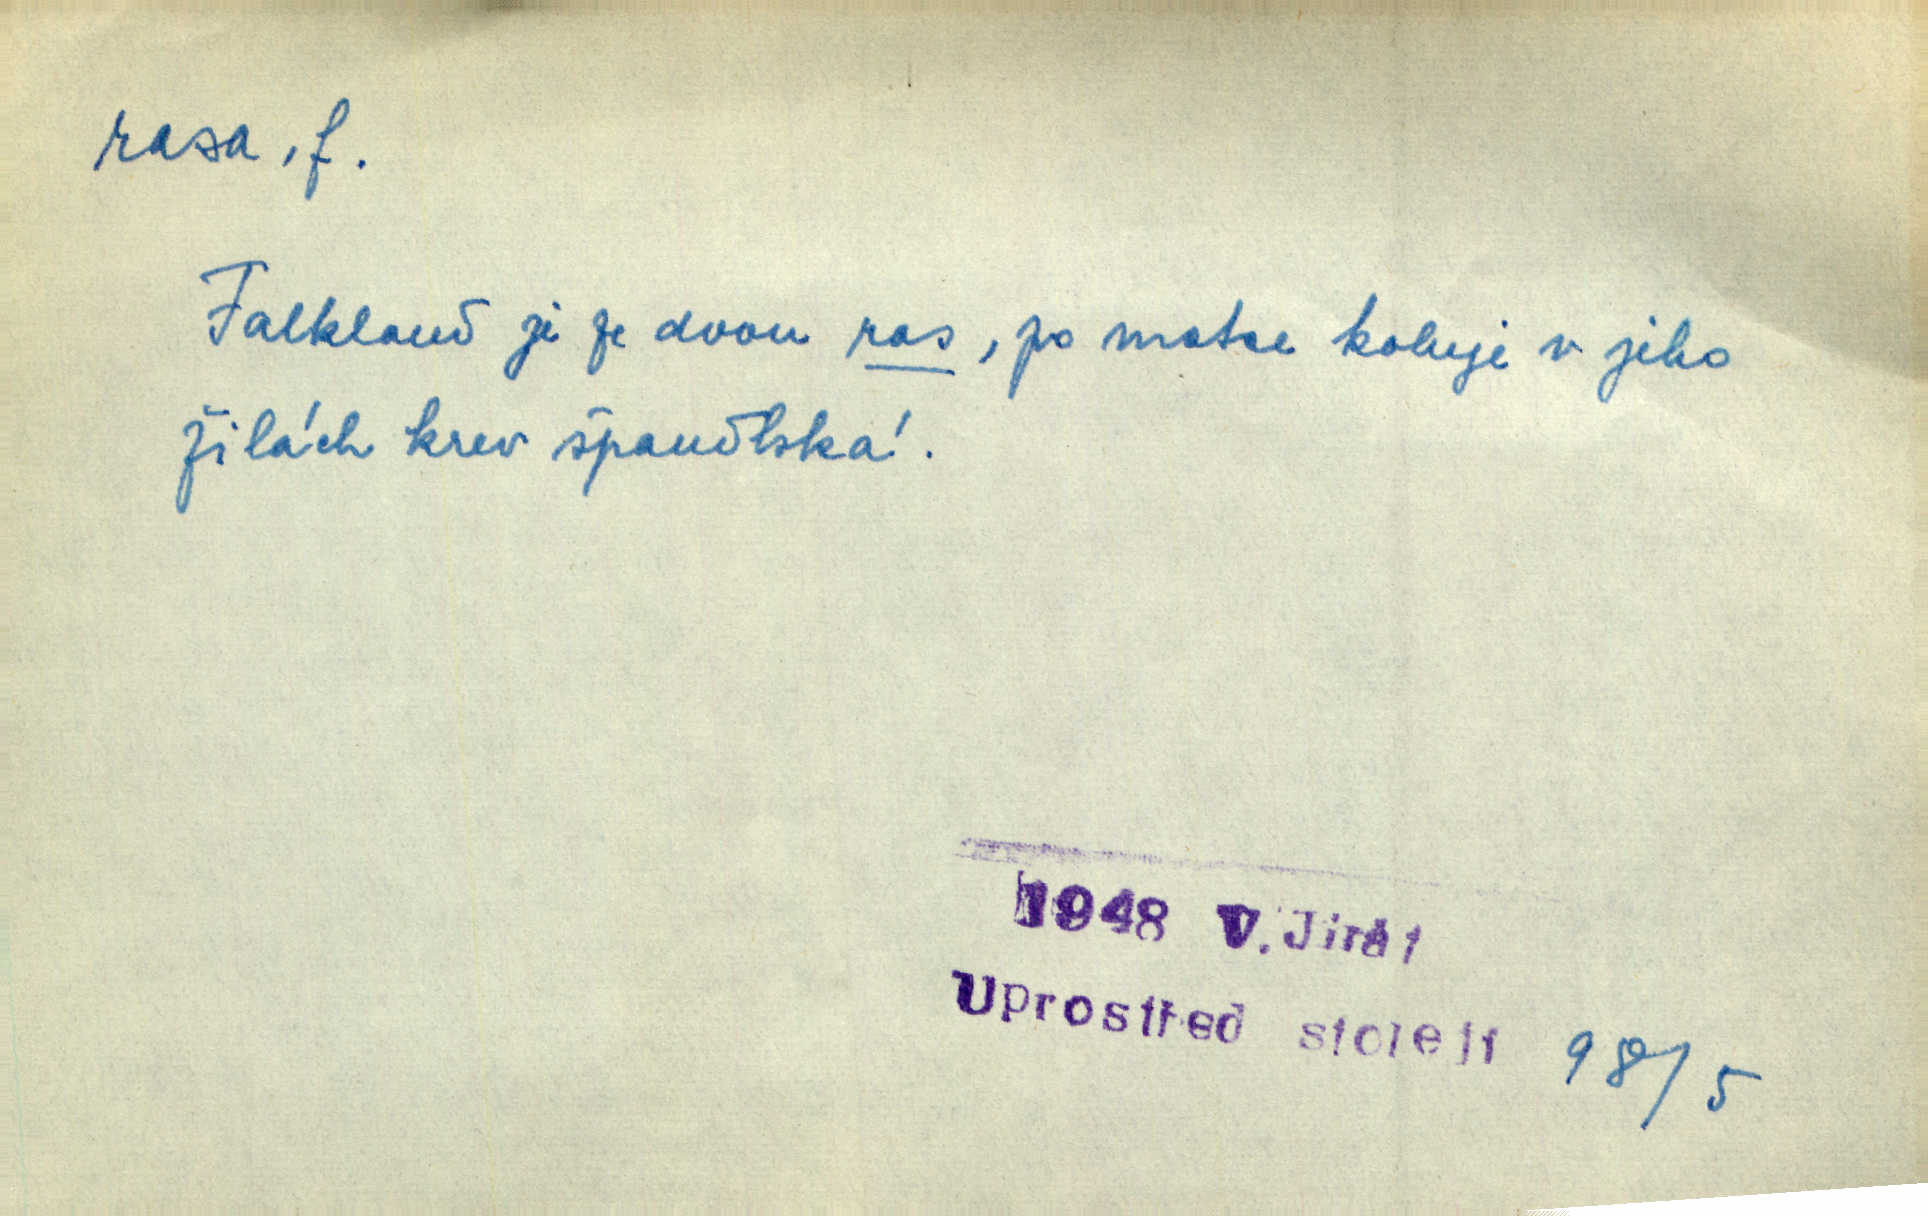 rasa, f.
Falkland je ze dvou ras, po matce koluje v jeho
žilách krev španělská.
1948 V. Jirát
Uprostřed století 98/5